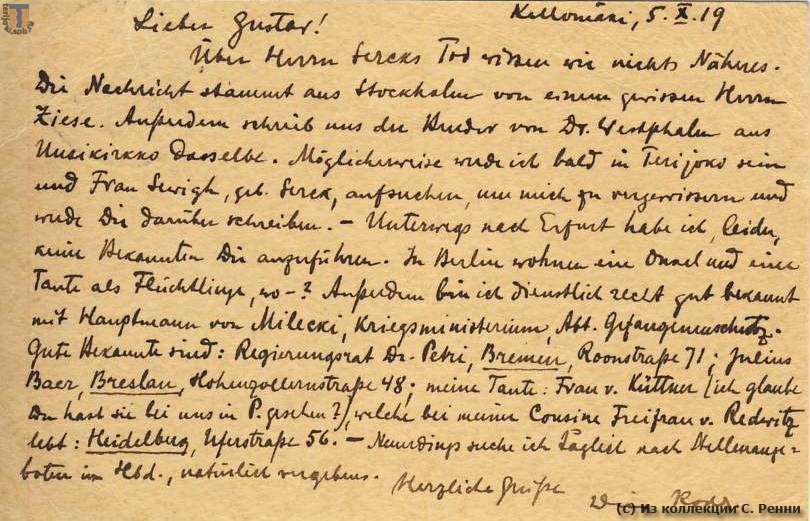 Lieber Gustav!
Kellomäki, 5. X. 19
Über Herrn Sercks Tod wissen wir nichts Näheres.
Die Nachricht stammt aus Stockholm von einem gewissen Herrn
Ziese. Außerdem schrieb uns der Bruder von Dr. Westphalen aus
Uusikirkko dasselbe. Möglicherweise werde ich bald in Terijoki sein
und Frau Sewigh, geb. Serck, aufsuchen, um mich zu vergewissern und
werde Dir darüber schreiben. – Unterwegs nach Erfurt habe ich, leider,
keine Bekannten Dir anzuführen. In Berlin wohnen ein Onkel und eine
Tante als Flüchtlinge, wo–? Außerdem bin ich dienstlich recht gut bekannt
mit Hauptmann von Milecki, Kriegsministerium, Abt. Gefangenenschutz.
Gute Bekannte sind: Regierungsrat Dr. Petri, Bremen, Roonstraße 71; Julius
Baer, Breslau, Hohenzollernstraße 48; meine Tante: Frau v. Küttner (ich glaube
Du hast sie bei uns in P. gesehen?), welche bei meiner Cousine Freifrau v. Redwitz
lebt: Heidelberg, Uferstraße 56. – Neuerdings suche ich täglich nach Stellenange=
boten im Hbd., natürlich vergebens.
Herzliche Grüße
terijoki.spb.ru
(c) Из коллекции С. Ренни